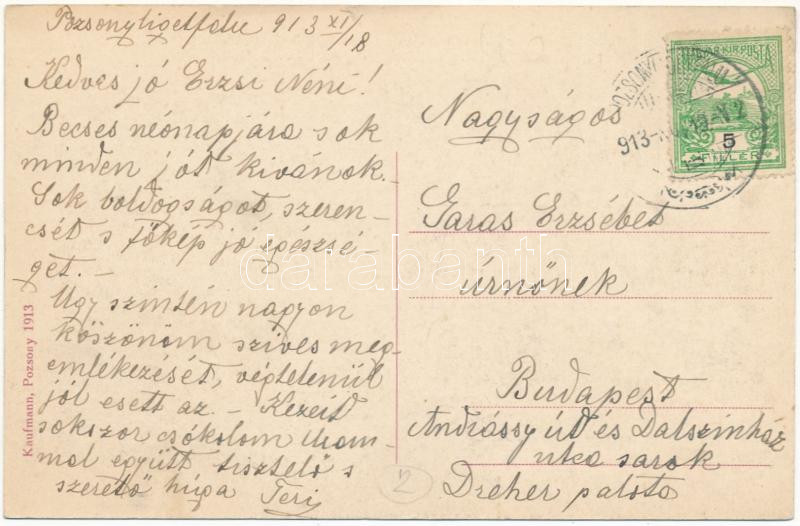 Pozsonyligetfalu 913 XI/18
Kedves jó Erzsi Néni!
Becses néonapjára sok
minden jót kivánok.
Sok boldogságot, szeren-
csét s főkép jó egészsé-
get. –
Ugy szintén nagyon
köszönöm szives meg-
emlékezését, végtelenül
jól esett az. – Kezeit
sokszor csókolom Uram-
mal együtt tisztelő s
szerető húga Teri
Kaufmann, Pozsony 1913
Nagyságos
Garas Erzsébet
úrnőnek
Budapest
Andrássy út és Dalszinház
utca sarok
Dreher palota
MAGYAR KIR. POSTA
5
FILLÉR
2
darabanth